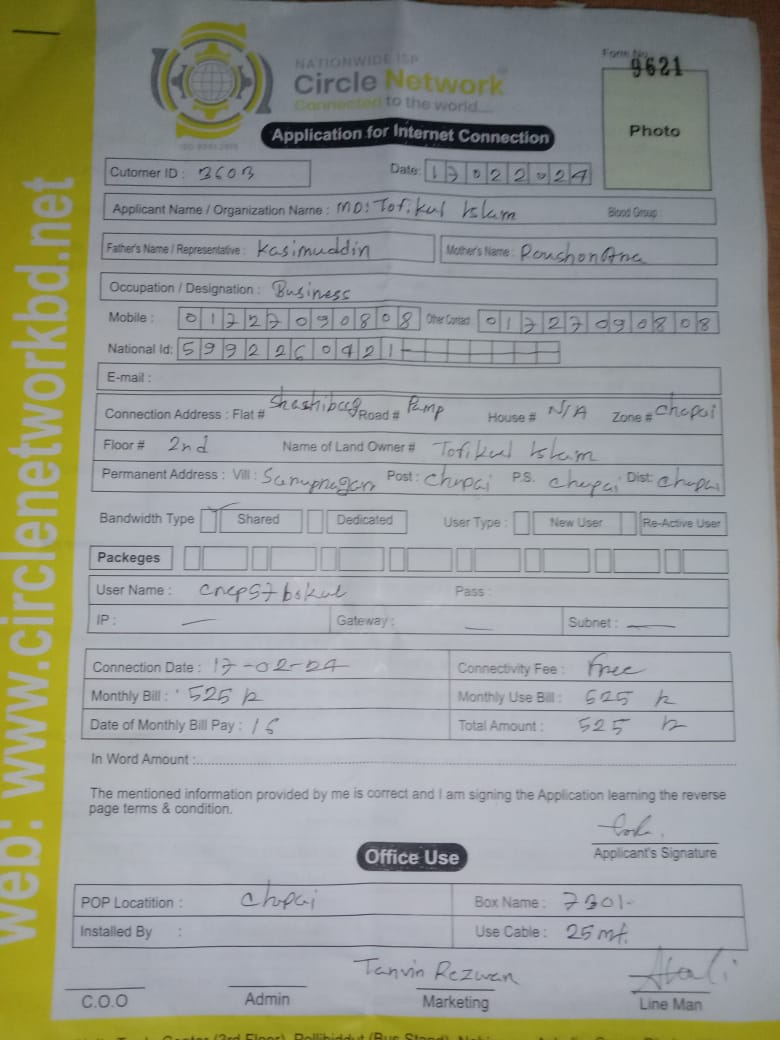 NATIONWIDE ISP
Circle Network
Connected to the world....
ISO 9001:2015
Form No.
9621
Application for Internet Connection
Photo
Cutomer ID : 3603
Date: 17022024
Applicant Name / Organization Name : MD: Tofikul Islam Blood Group :
Father's Name / Representative : Kasimuddin Mother's Name : RoushonAra
Occupation / Designation : Business
Mobile : 01727090808 Other Contact : 01727090808
National Id: 5992260421
E-mail :
Connection Address : Flat # Shashibag Road # Pump House # N/A Zone # Chapai
Floor # 2nd Name of Land Owner # Tofikul Islam
Permanent Address : Vill : Post : Chapai P.S. Chapai Dist: Chapai
Bandwidth Type Shared Dedicated User Type : New User Re-Active User
Packeges
User Name : Pass :
IP : — Gateway : — Subnet : —
Connection Date : 17-02-24 Connectivity Fee : Free
Monthly Bill : 525 Monthly Use Bill : 525
Date of Monthly Bill Pay : Total Amount : 525
In Word Amount :
The mentioned information provided by me is correct and I am signing the Application learning the reverse
page terms & condition.
Applicant's Signature
Office Use
POP Locatition : Chapai Box Name : 7301-
Installed By : Use Cable : 25 mt.
Tanvin Rezwan
C.O.O Admin Marketing Line Man
web: www.circlenetworkbd.net